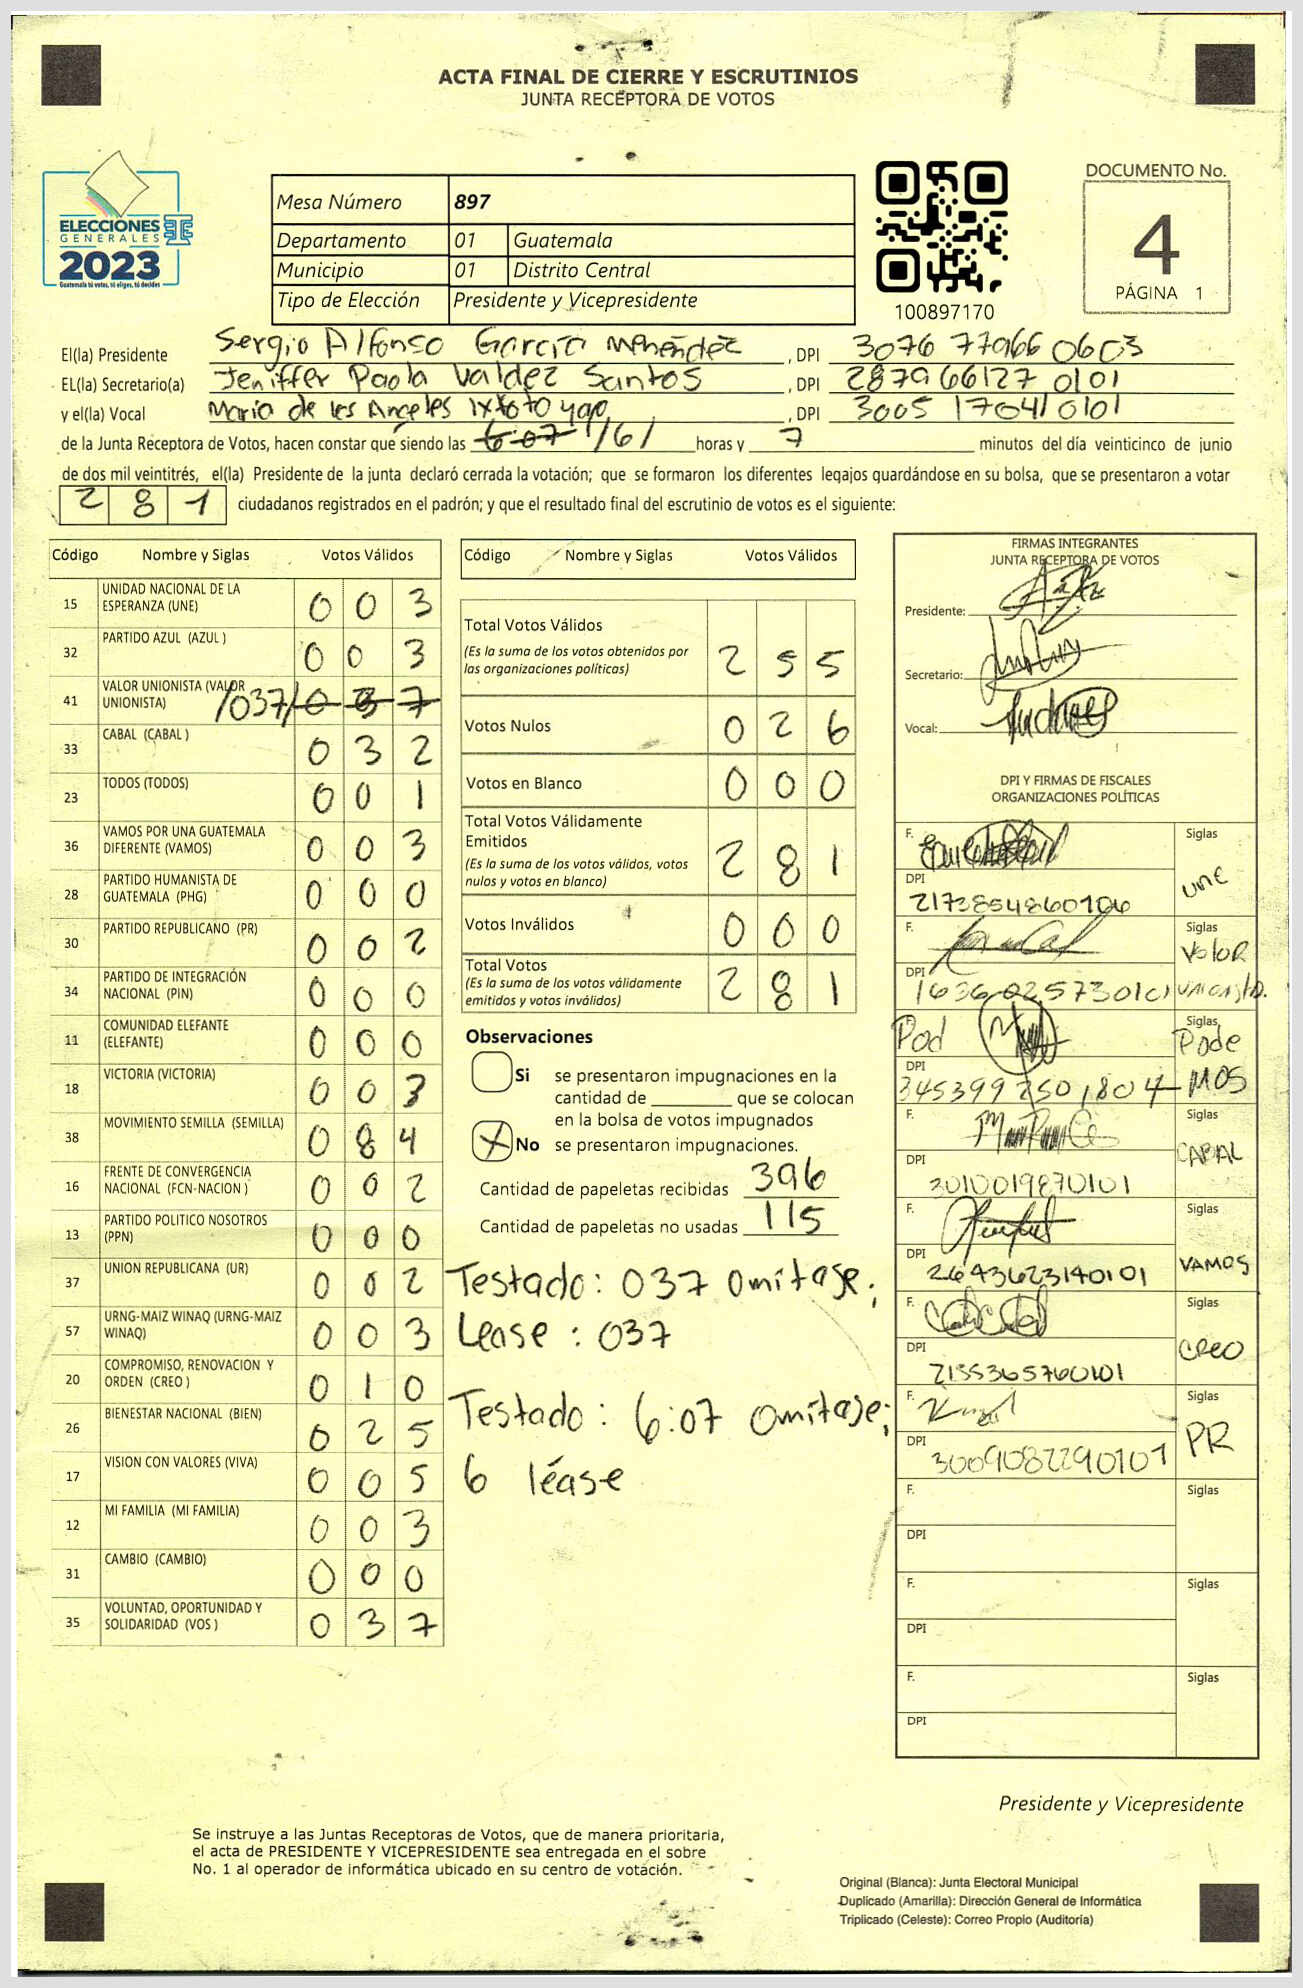 ACTA FINAL DE CIERRE Y ESCRUTINIOS
JUNTA RECEPTORA DE VOTOS
ELECCIONES
GENERALES
2023
Guatemala tú votas, tú eliges, tú decides
Mesa Número 897
Departamento 01 Guatemala
Municipio 01 Distrito Central
Tipo de Elección Presidente y Vicepresidente
100897170
DOCUMENTO No.
4
PÁGINA 1
El(la) Presidente Sergio Alfonso García Menéndez , DPI 3076 77966 0603
EL(la) Secretario(a) Jeniffer Paola Valdez Santos , DPI 2879 66127 0101
y el(la) Vocal Maria de los Angeles Ixtoto yapo , DPI 3005 17041 0101
de la Junta Receptora de Votos, hacen constar que siendo las 6:07 /6/ horas y 7 minutos del día veinticinco de junio
de dos mil veintitrés, el(la) Presidente de la junta declaró cerrada la votación; que se formaron los diferentes legajos quardándose en su bolsa, que se presentaron a votar
281 ciudadanos registrados en el padrón; y que el resultado final del escrutinio de votos es el siguiente:
Código Nombre y Siglas Votos Válidos
15 UNIDAD NACIONAL DE LA ESPERANZA (UNE) 0 0 3
32 PARTIDO AZUL (AZUL ) 0 0 3
41 VALOR UNIONISTA (VALOR UNIONISTA) /037/ 0 3 7
33 CABAL (CABAL ) 0 3 2
23 TODOS (TODOS) 0 0 1
36 VAMOS POR UNA GUATEMALA DIFERENTE (VAMOS) 0 0 3
28 PARTIDO HUMANISTA DE GUATEMALA (PHG) 0 0 0
30 PARTIDO REPUBLICANO (PR) 0 0 2
34 PARTIDO DE INTEGRACIÓN NACIONAL (PIN) 0 0 0
11 COMUNIDAD ELEFANTE (ELEFANTE) 0 0 0
18 VICTORIA (VICTORIA) 0 0 3
38 MOVIMIENTO SEMILLA (SEMILLA) 0 8 4
16 FRENTE DE CONVERGENCIA NACIONAL (FCN-NACION ) 0 0 2
13 PARTIDO POLITICO NOSOTROS (PPN) 0 0 0
37 UNION REPUBLICANA (UR) 0 0 2
57 URNG-MAIZ WINAQ (URNG-MAIZ WINAQ) 0 0 3
20 COMPROMISO, RENOVACION Y ORDEN (CREO ) 0 1 0
26 BIENESTAR NACIONAL (BIEN) 0 2 5
17 VISION CON VALORES (VIVA) 0 0 5
12 MI FAMILIA (MI FAMILIA) 0 0 3
31 CAMBIO (CAMBIO) 0 0 0
35 VOLUNTAD, OPORTUNIDAD Y SOLIDARIDAD (VOS ) 0 3 7
Código Nombre y Siglas Votos Válidos
Total Votos Válidos 2 5 5
(Es la suma de los votos obtenidos por
las organizaciones políticas)
Votos Nulos 0 2 6
Votos en Blanco 0 0 0
Total Votos Válidamente
Emitidos 2 8 1
(Es la suma de los votos válidos, votos
nulos y votos en blanco)
Votos Inválidos 0 0 0
Total Votos 2 8 1
(Es la suma de los votos válidamente
emitidos y votos inválidos)
Observaciones
Si se presentaron impugnaciones en la
cantidad de ________ que se colocan
en la bolsa de votos impugnados
X No se presentaron impugnaciones.
Cantidad de papeletas recibidas 396
Cantidad de papeletas no usadas 115
Testado: 037 Omitase;
Lease : 037
Testado : 6:07 Omitase;
6 léase
FIRMAS INTEGRANTES
JUNTA RECEPTORA DE VOTOS
Presidente:
Secretario:
Vocal:
DPI Y FIRMAS DE FISCALES
ORGANIZACIONES POLÍTICAS
F. Siglas UNE
DPI 2173854860106
F. Siglas Valor Unionista.
DPI 1636025730101
F. Siglas Pode MOS
DPI 3453992501804
F. Siglas CABAL
DPI 3010019870101
F. Siglas VAMOS
DPI 2643623140101
F. Siglas CREO
DPI 2155365760101
F. Siglas PR
DPI 3009082290101
F. Siglas
DPI
F. Siglas
DPI
F. Siglas
DPI
Presidente y Vicepresidente
Se instruye a las Juntas Receptoras de Votos, que de manera prioritaria,
el acta de PRESIDENTE Y VICEPRESIDENTE sea entregada en el sobre
No. 1 al operador de informática ubicado en su centro de votación.
Original (Blanca): Junta Electoral Municipal
Duplicado (Amarilla): Dirección General de Informática
Triplicado (Celeste): Correo Propio (Auditoría)